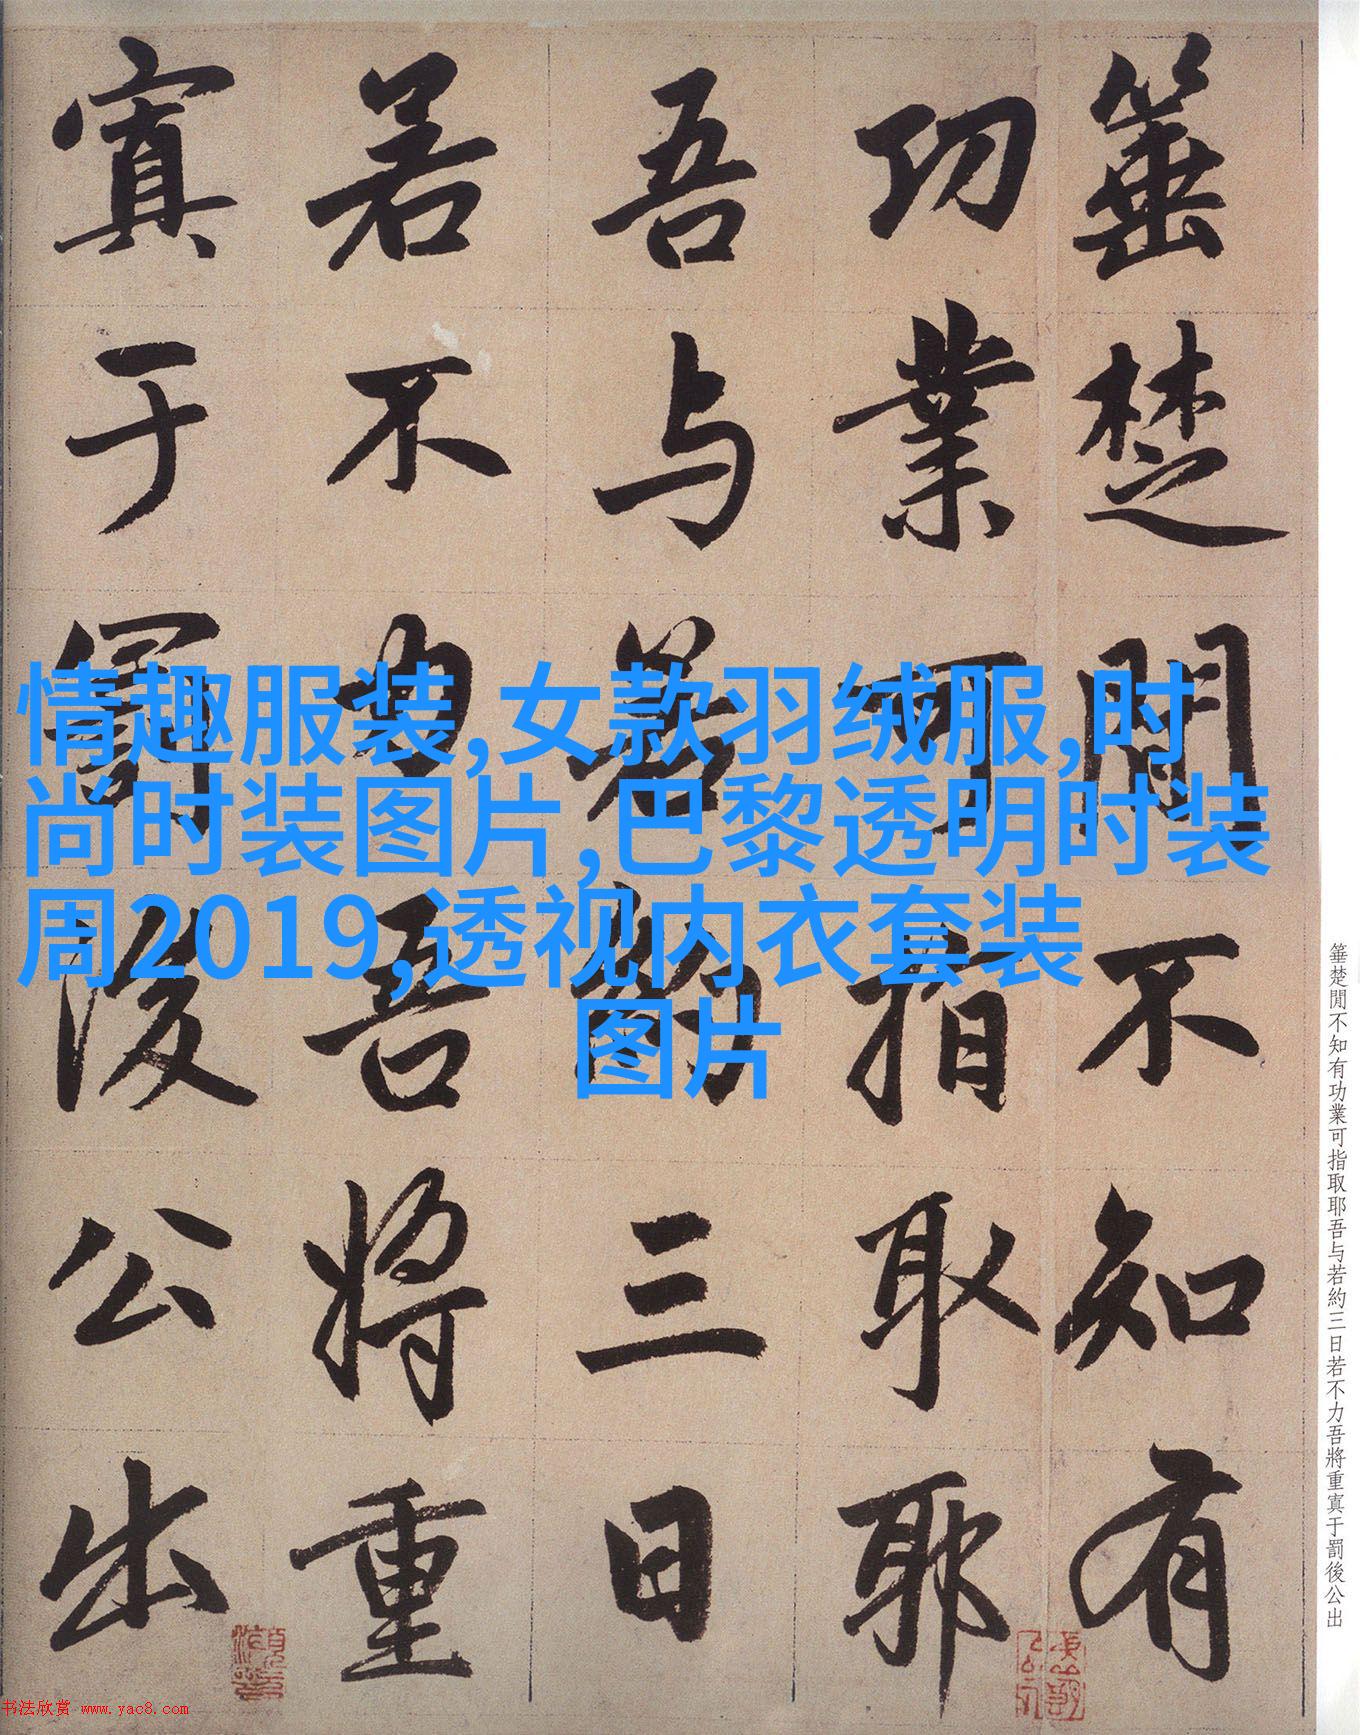 箠楚閒不知有
功業可指取耶
吾与若約三日
若不力吾將重
寘于罰後公出
情趣服装,女款羽绒服,时
尚时装图片,巴黎透明时装
周2019,透视内衣套装
图片
箠楚閒不知有功業可指取耶吾与若約三日若不力吾將重寘于罰後公出
书法欣赏 www.yac8.com